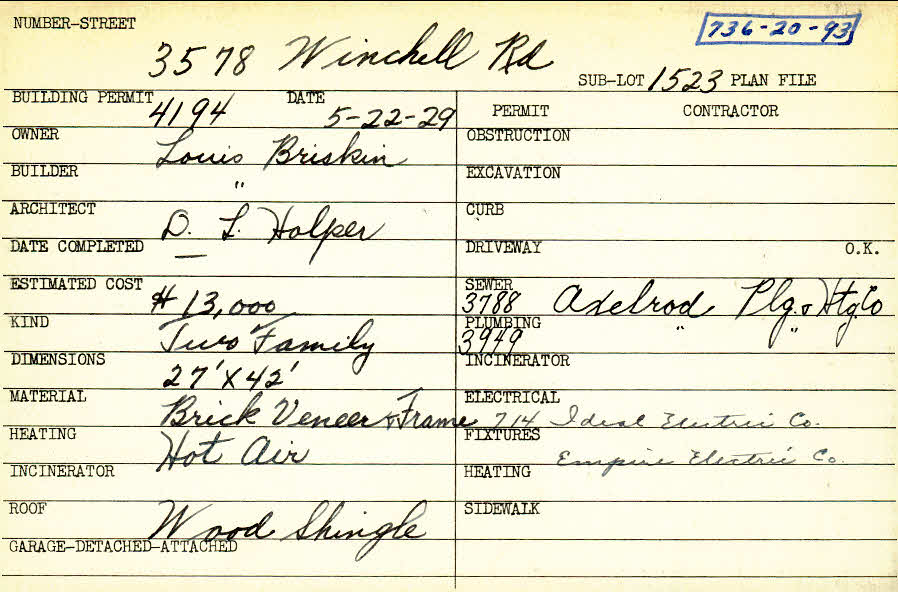 NUMBER-STREET 3578 Winchell Rd
736-20-93
SUB-LOT 1523 PLAN FILE
BUILDING PERMIT 4194 DATE 5-22-29
OWNER Louis Briskin
BUILDER "
ARCHITECT D. L. Halper
DATE COMPLETED —
ESTIMATED COST $ 13,000
KIND Two Family
DIMENSIONS 27' X 42'
MATERIAL Brick Veneer & Frame
HEATING Hot Air
INCINERATOR
ROOF Wood Shingle
GARAGE-DETACHED-ATTACHED
PERMIT CONTRACTOR
OBSTRUCTION
EXCAVATION
CURB
DRIVEWAY O.K.
SEWER 3788 Axelrod Plg. & Htg. Co
PLUMBING 3949 " "
INCINERATOR
ELECTRICAL 714 Ideal Electric Co.
FIXTURES Empire Electric Co.
HEATING
SIDEWALK